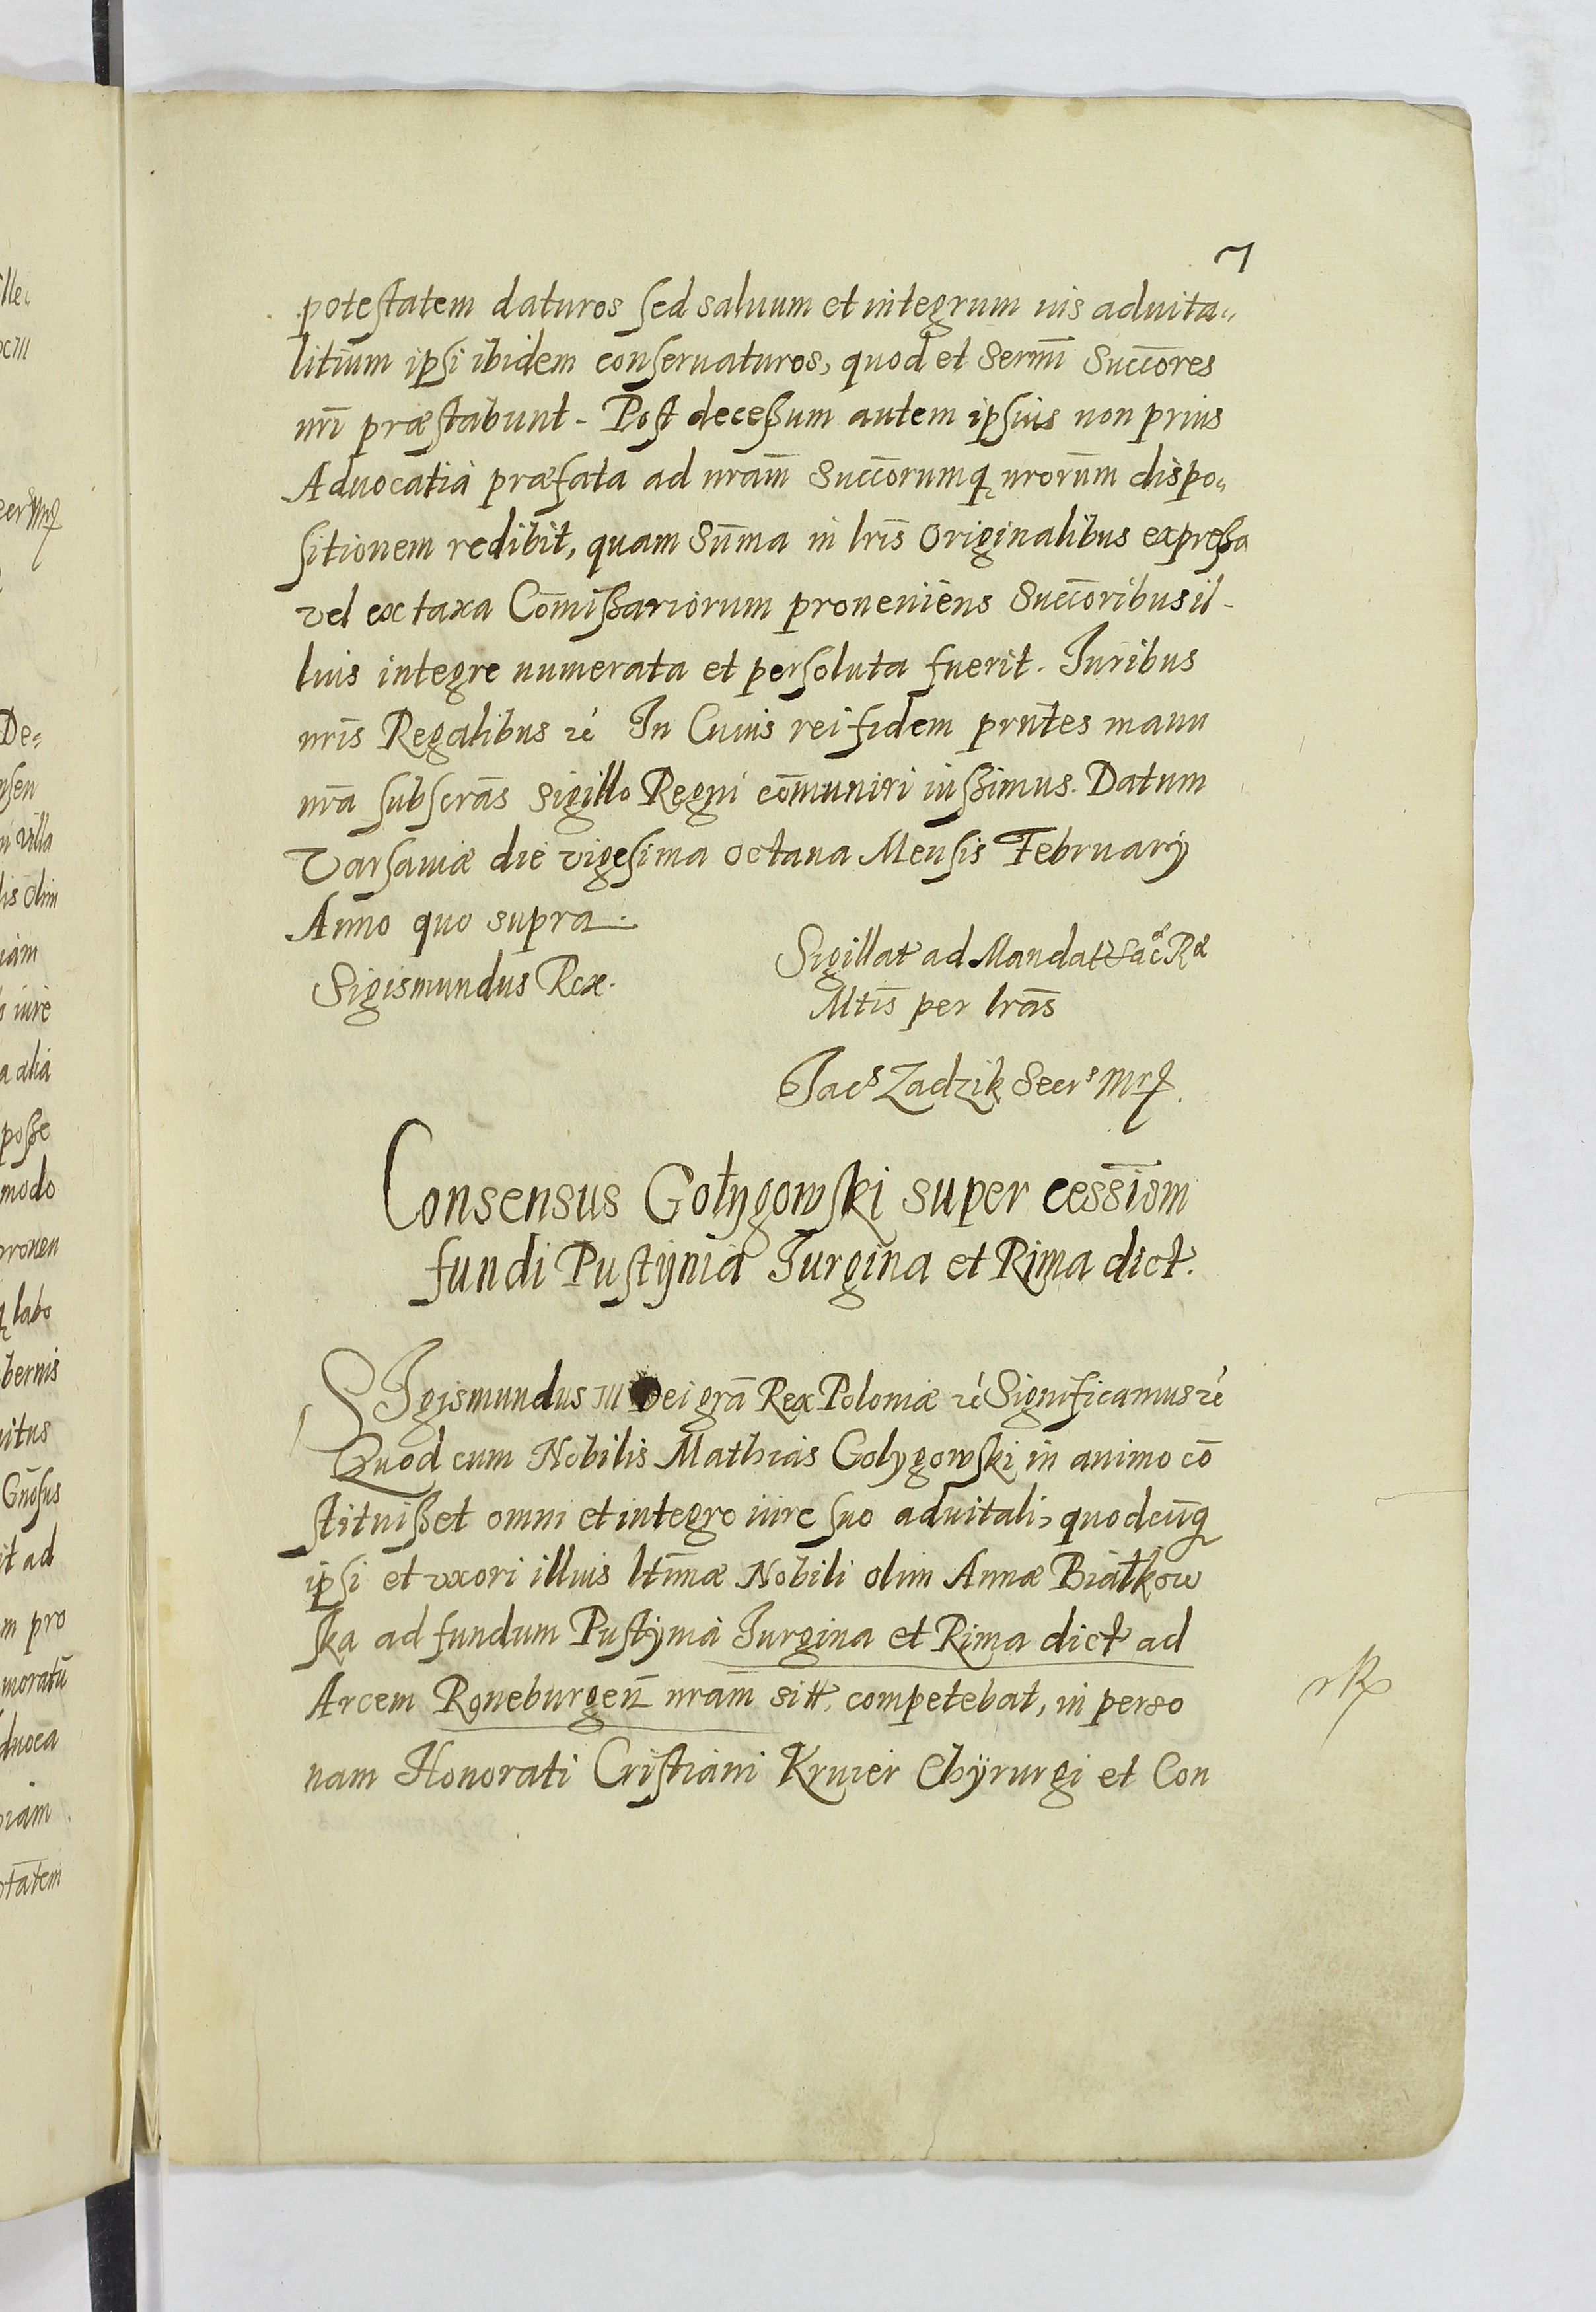 7
potestatem daturos sed saluum et integrum ius aduita„
litium ipsi ibidem conseruaturos, quod et Sermi Succores
nri præstabunt. Post decessum autem ipsius non prius
Aduocatia præfata ad nram Succorumq nrorum dispo„
sitionem redibit, quam Suma in lris Originalibus expressa
vel ex taxa Comissariorum proueniens Succoribus il-
lius integre numerata et persoluta fuerit. Iuribus
nris Regalibus rc In Cuius rei fidem prntes manu
nra subscras Sigillo Regni comuniri iussimus. Datum
Varsauiæ die vigesima octaua Mensis February
Anno quo supra.
Sigismundus Rex.
Sigillat ad Mandat Sac Rx
Mtis per lras
Jacs Zadzik Secrs mrp.
Consensus Gołygowski super cessiom
fundi Pustijnia Jurgina et Rima dict.
SIgismundus III Dei gra Rex Poloniæ rc Significamus rc
Quod cum Nobilis Mathias Golygowski in animo co
stituisset omni et integro iure suo aduitali, quodcuq
ipsi et vxori illius ltimæ Nobili olim Annæ Białkow
ska ad fundum Pustynia Jurgina et Rima dict ad
Arcem Roneburgen nram sitt. competebat, in perso
nam Honorati Cristiani Kruier Chyrurgi et Con
ille
De=
nsen
n villa
lis olim
iam
iure
a alia
posse
modo
prouen
q labo
bernis
itus
Gnosus
it ad
m pro
moratu
duoca
iam
otatem